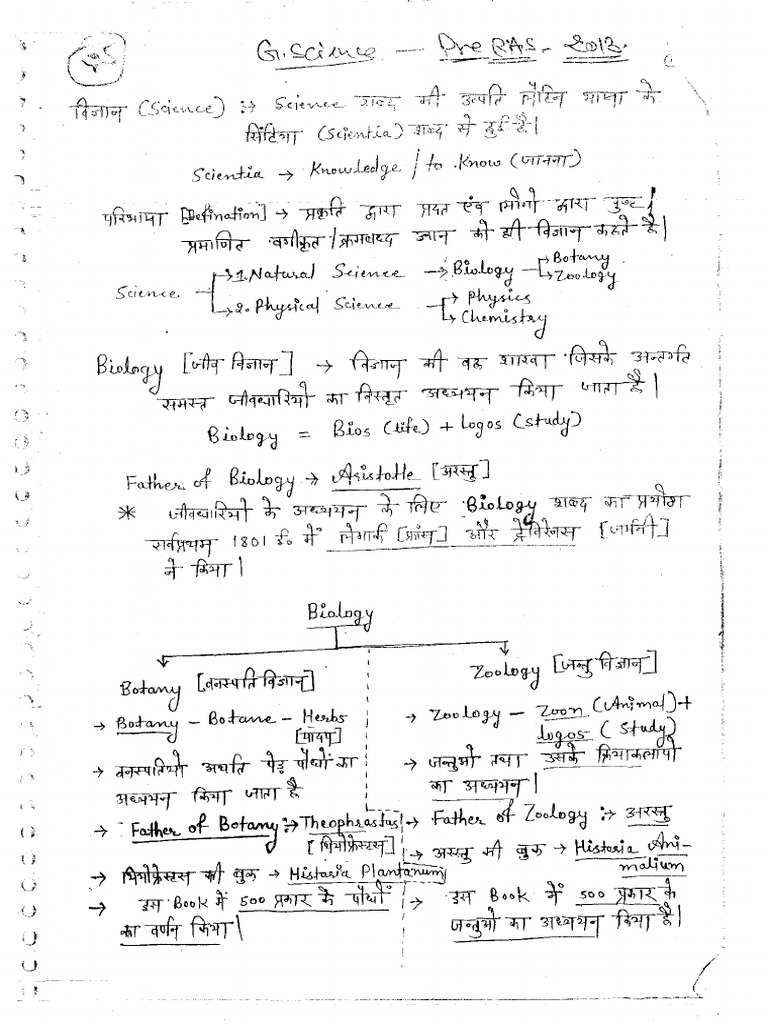 G. Science — Pre RAS - 2013.
विज्ञान (Science) :→ Science शब्द की उत्पति लैटिन भाषा के
सिंटिया (Scientia) शब्द से हुई है।
Scientia → Knowledge / to Know (जानना)
परिभाषा [Defination] → प्रकृति द्वारा प्रदत एवं द्वारा
प्रमाणित वर्गीकृत / क्रमबध्द ज्ञान को ही विज्ञान कहते है।
Science → 1. Natural Science → Biology → Botany → Zoology
→ 2. Physical Science → Physics → Chemistry
Biology [जीव विज्ञान] → विज्ञान की वह शाखा जिसके अन्तर्गत
समस्त जीवधारियो का विस्तृत अध्ययन किया जाता है।
Biology = Bios (life) + Logos (study)
Father of Biology → Aristotle [अरस्तु]
* जीवधारियो के अध्ययन के लिए Biology शब्द का प्रयोग
सर्वप्रथम 1801 ई. में लेमार्क [फ्रांस] और ट्रेविरेनस [जर्मनी]
ने किया।
Biology
Botany [वनस्पति विज्ञान]
→ Botany - Botane - Herbs
[पादप]
→ वनस्पतियो अर्थात पेड़ पौधों का
अध्ययन किया जाता है
→ Father of Botany :→ Theophrastus
[थियोफ्रेस्टस]
→ थियोफ्रेस्टस की बुक → Histaria Plantanum
→ इस Book में 500 प्रकार के पौधों
का वर्णन किया।
Zoology [जन्तु विज्ञान]
→ Zoology - Zoon (Animal) +
logos (Study)
→ जन्तुओ तथा उसके क्रियाकलापो
का अध्ययन।
→ Father of Zoology :→ अरस्तु
→ अरस्तु की बुक → Histaria Ani-
malium
→ इस Book में 500 प्रकार के
जन्तुओ का अध्ययन किया है।